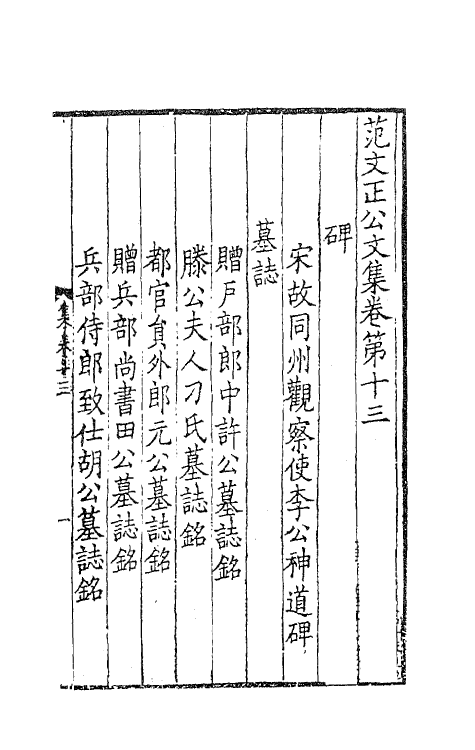 范文正公文集卷第十三
碑
宋故同州觀察使李公神道碑
墓誌
贈戶部郎中許公墓誌銘
滕公夫人刁氏墓誌銘
都官員外郎元公墓誌銘
贈兵部尚書田公墓誌銘
兵部侍郎致仕胡公墓誌銘
集卷十三
一